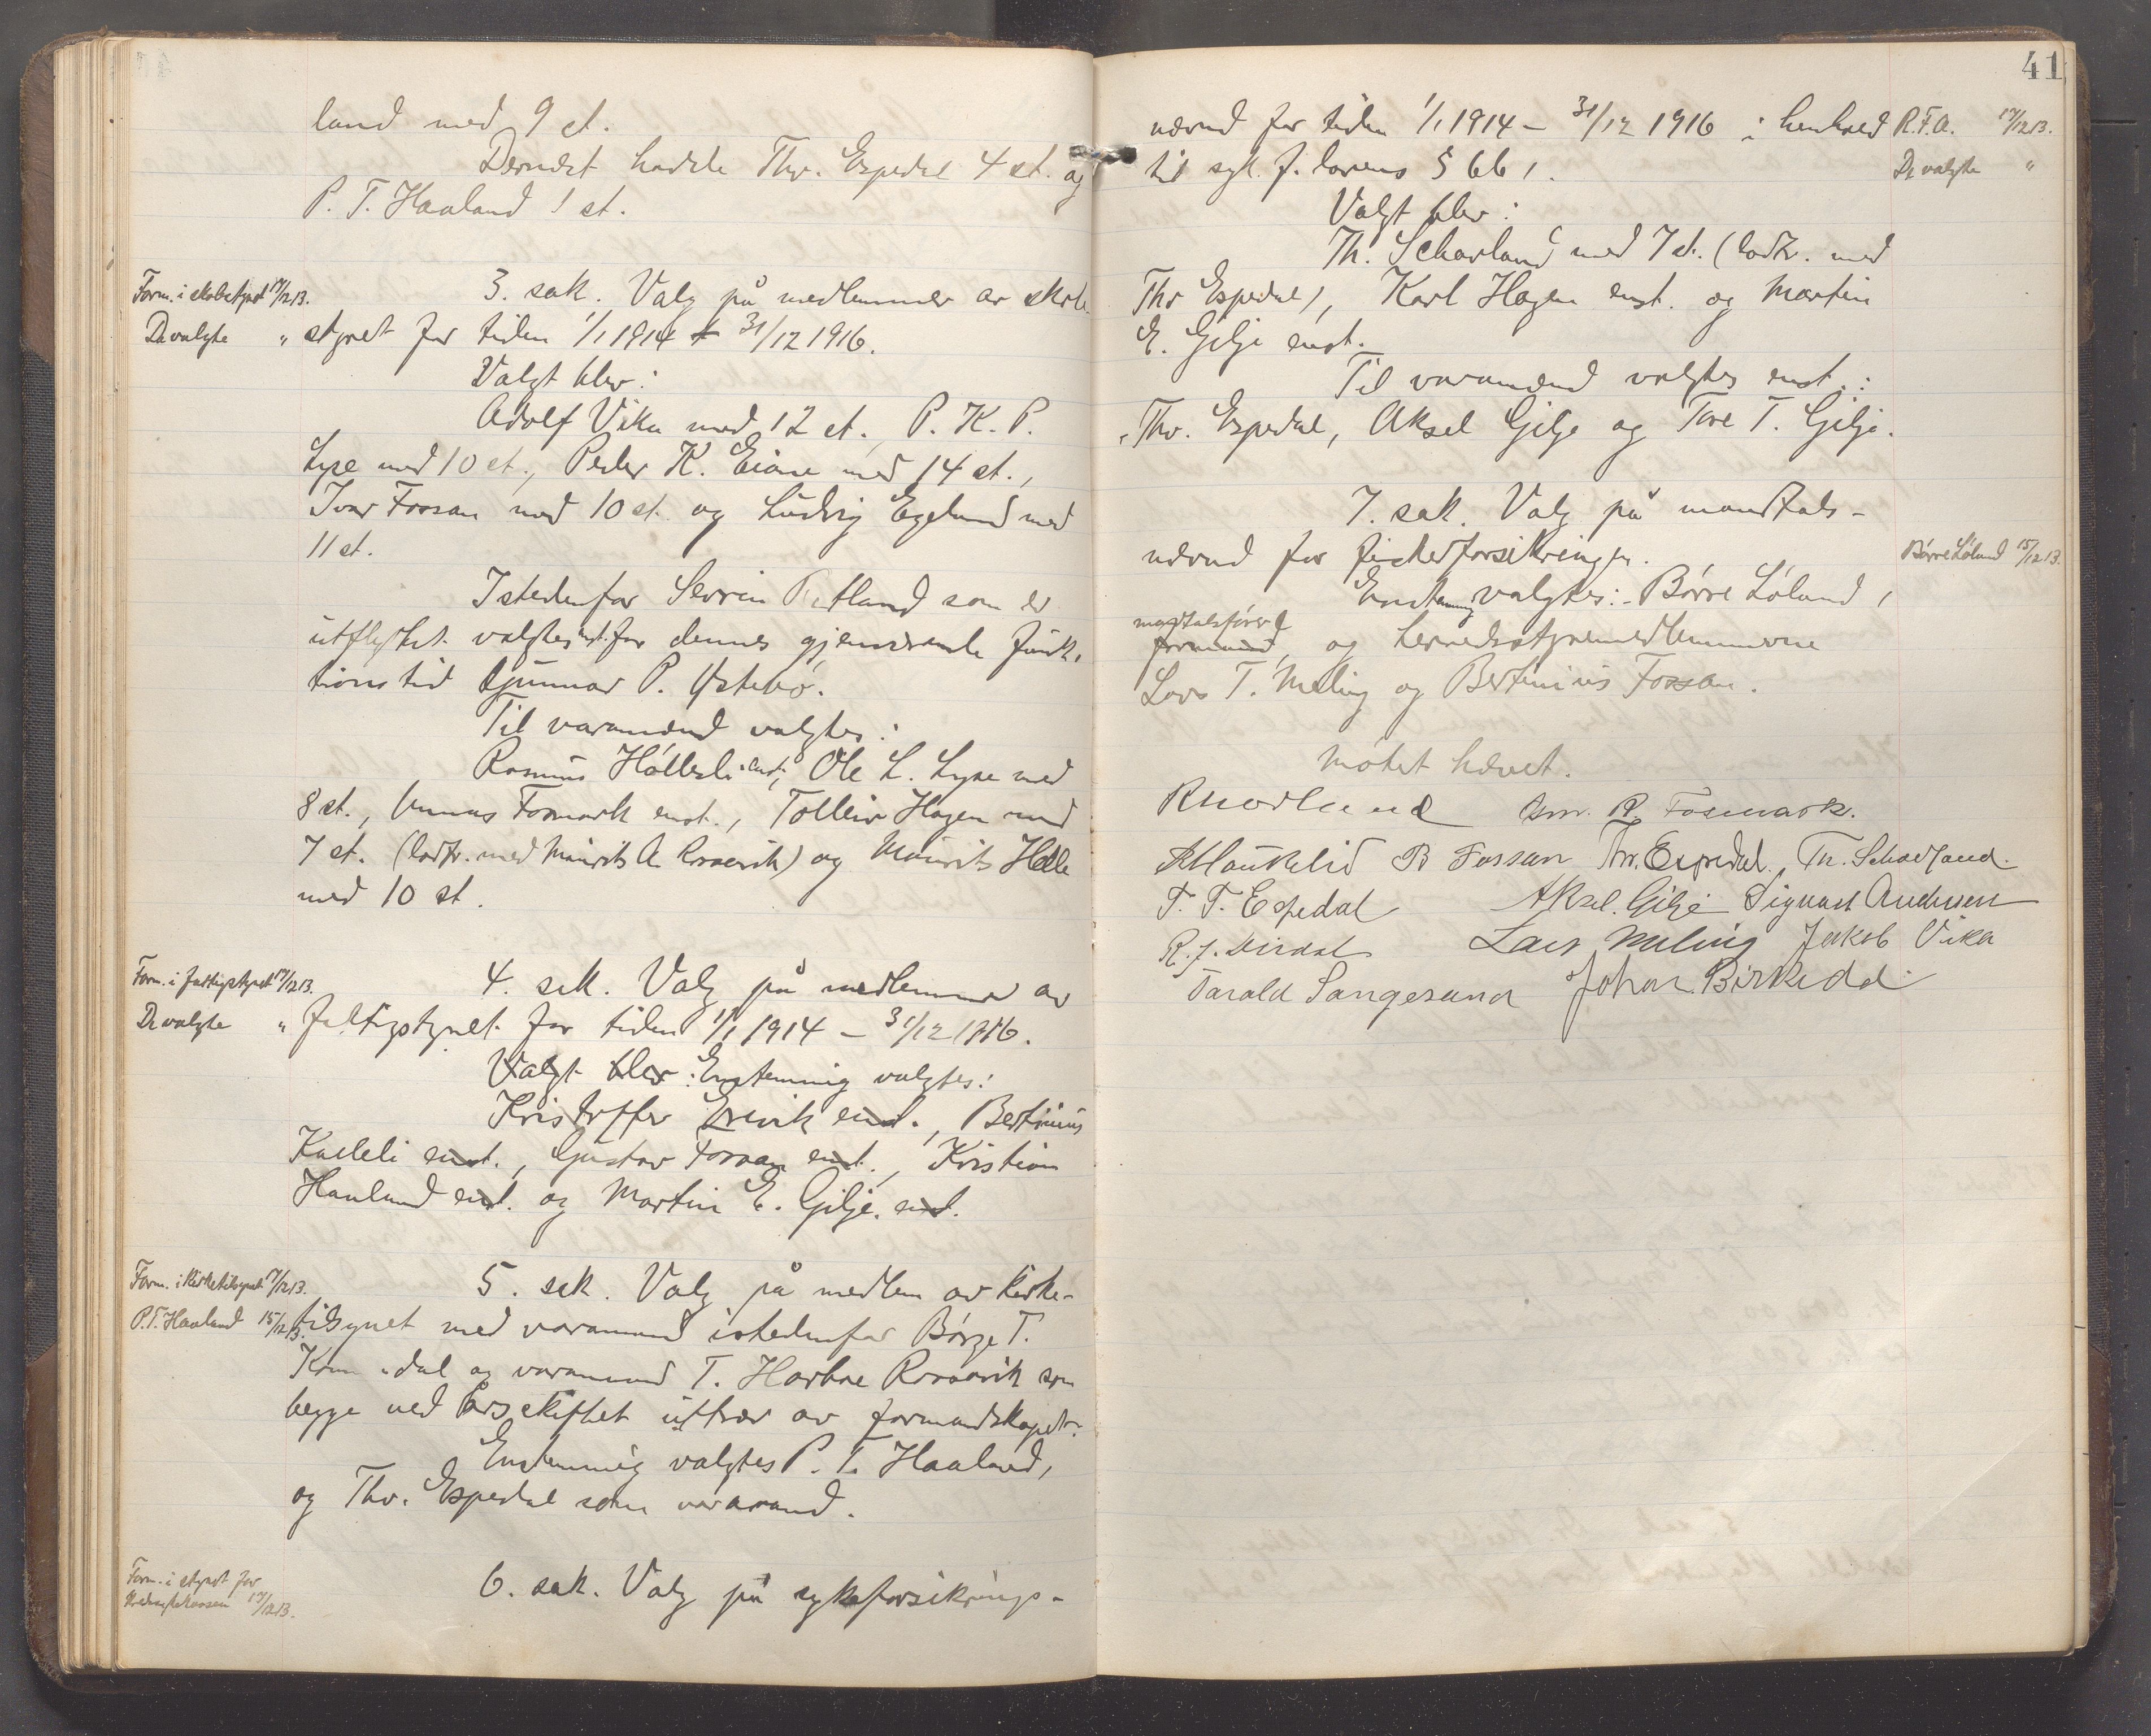 land med 9 st.
Dernæst hadde Thv. Espedal 4 st. og
P. T. Haaland 1 st.
Form. i skolestyret 17/12 13.
De valgte "
3. sak. Valg på medlemmer av skole
styret for tiden 1/1 1914 – 31/12 1916.
Valgt blev:
Adolf Vika med 12 st., P. K. P.
Lyse med 10 st., Peder K. Eiane med 14 st.,
Ivar Fossan med 10 st. og Ludvig Egeland med
11 st.
Istedenfor Sevrin som er
utflyttet valgtes enst. for dennes gjenværende funk-
tionstid Gunnar P. Østebø.
Til varamænd valgtes:
Rasmus Hølleslien enst., Ole L. Lyse med
8 st., Fosmark enst., Tolleiv Hagen med
7 st. (lodtr. med Maurits A. Rossavik) og Maurits Helle
med 10 st.
Form. i fattigstyret 17/12 13.
De valgte "
4. sak. Valg på medlemmer av
fattigstyret for tiden 1/1 1914 – 31/12 1916.
Valgt blev: Enstemmig valgtes:
Kristoffer Erevik enst., Bertinius
Kalleli enst., Gustav Fossan enst., Kristian
Haaland enst. og Martin E. Gilje enst.
Form. i kirketilsynet 17/12 13.
P. T. Haaland 15/12 13.
5. sak. Valg på medlem av kirke-
tilsynet med varamand istedenfor Børge T.
og varamand T. Rossavik som
begge ved årsskiftet uttrær av formandskapet.
Enstemmig valgtes P. T. Haaland,
og Thv. Espedal som varamand.
Form. i styret for
17/12 13.
6. sak. Valg på sykeforsikrings-
41
nævnd for tiden 1/1 1914 – 31/12 1916 i henhold
til syk. f. lovens § 66 1.
R.F.A. 17/12 13.
De valgte "
Valgt blev:
Th. Scharland med 7 st. (lodtr. med
Thv Espedal), Karl Hagen enst. og Martin
E. Gilje enst.
Til varamænd valgtes enst.:
Thv. Espedal, Aksel Gilje og Tore T. Gilje.
7. sak. Valg på mandtals-
nævnd for fiskerforsikringen.
Børre Løland 15/12 13.
Enstemmig valgtes: Børre Løland,
mantalsfører
formand, og herredsstyremedlemmerne
Lars T. Meling og Bertinius Fossan.
Møtet hævet.
R Nordland Asm. R. Fosmark.
Haukalid B Fossan Thv. Espedal. Th. Scharland.
T. T. Espedal Aksel Gilje Sigvart Andersen
R. J. Dirdal Lars Meling Jakob Vika
Tarald Sangesand Johan Birkedal